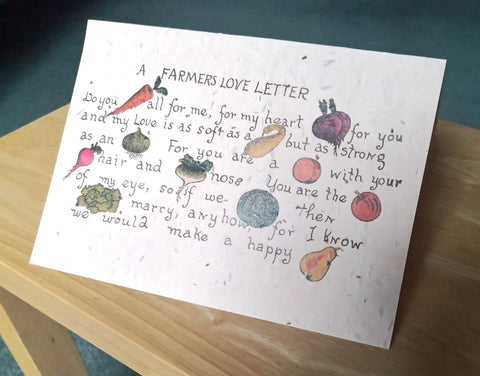 A FARMERS LOVE LETTER
Do you all for me, for my heart for you
and my Love is as soft as a but as strong
as an For you are a with your
hair and nose You are the
of my eye, so if we then
marry, anyhow, for I know
we would make a happy